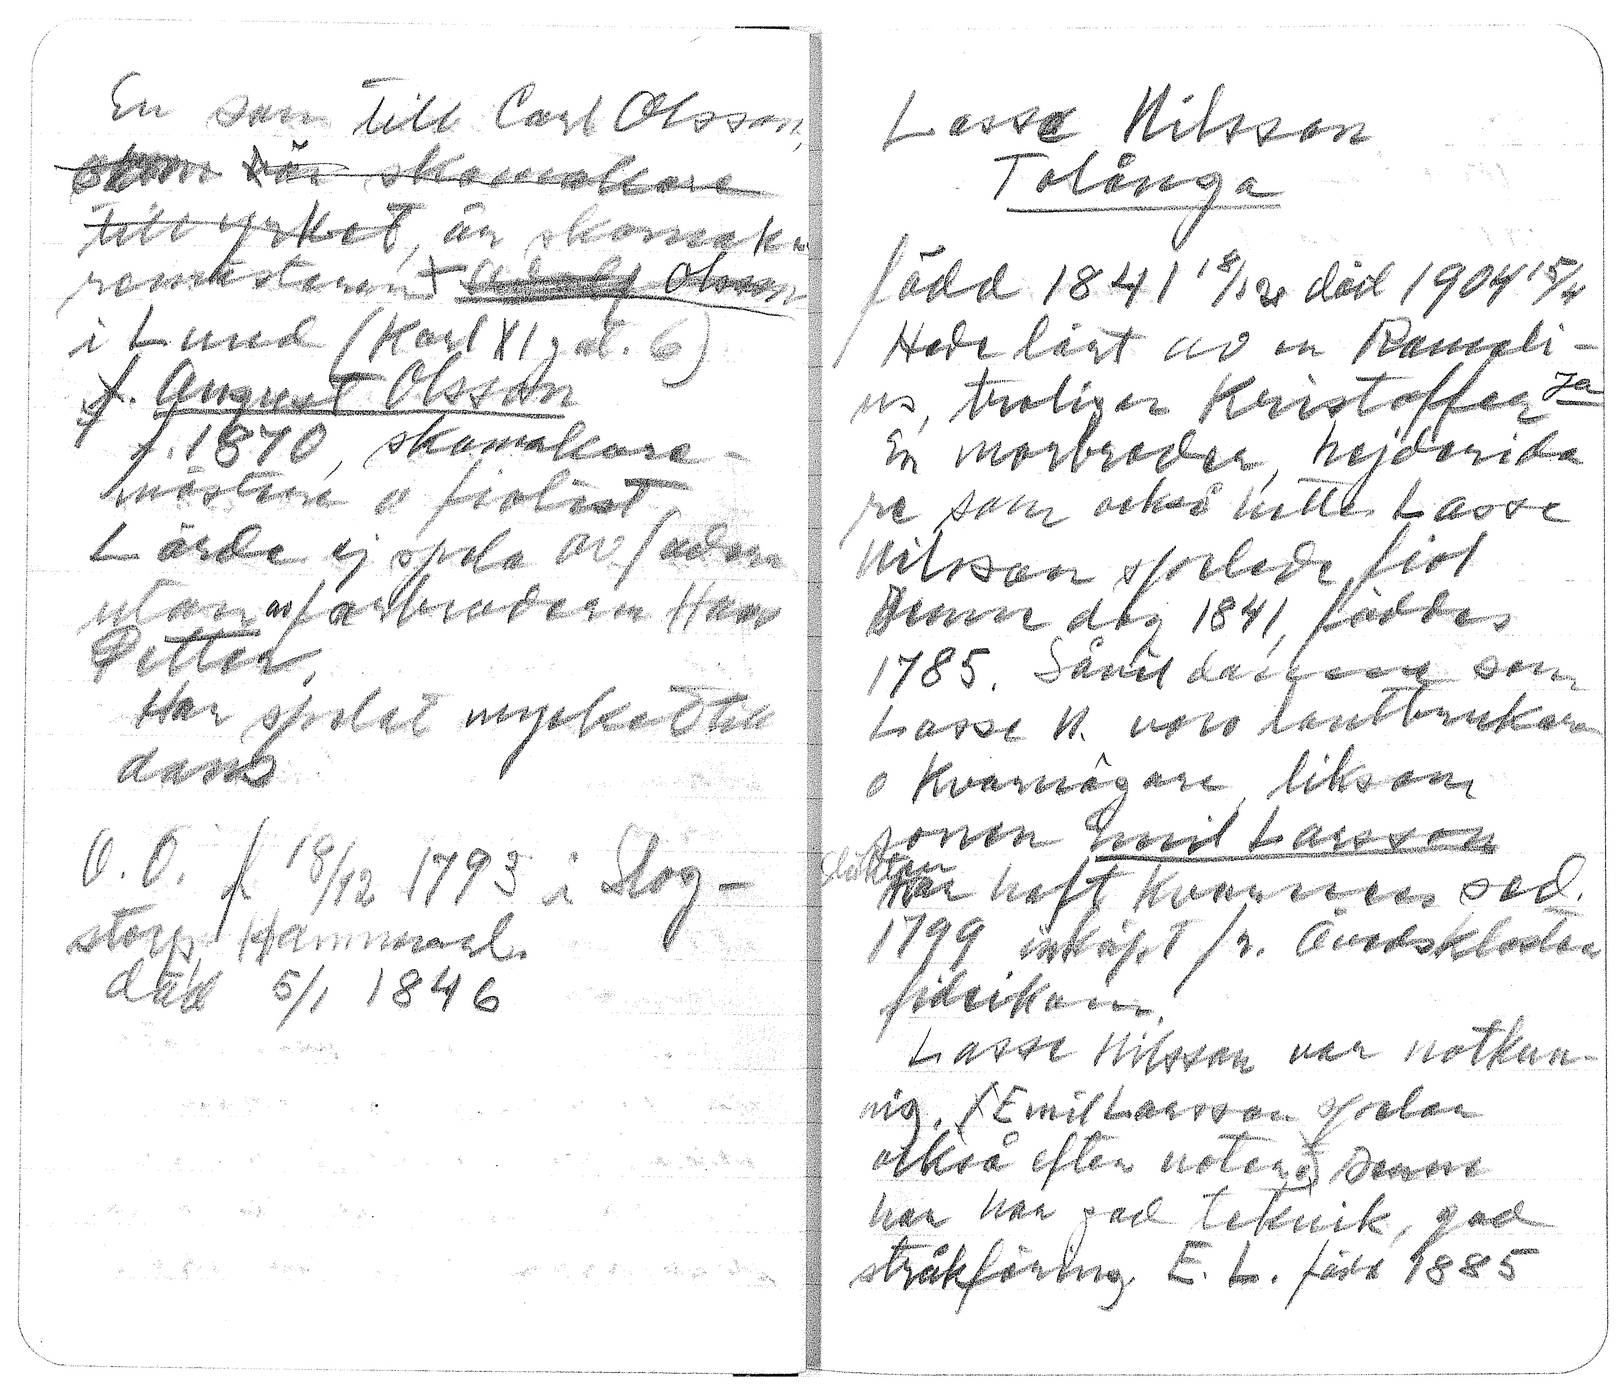 En son till Carl Olsson,
som är skomakare
till yrket, är skomaka
remästaren Adolf Olsson
i Lund (Karl XI gat. 6)
f. August Olsson
f. 1870, skomakare-
mästare o fiolist
Lärde ej spela av fadern
utan av farbrodern Hans
Petter.
Har spelat mycket till
dans
O. O. f 18/12 1793 i Slog-
storp, Hammenh.
död 5/1 1846
Lasse Nilsson
Tolånga
född 1841 18/12 död 1904 15/4
Hade lärt av en Rameli-
us, troligen Kristoffer Ja
En morbroder, hejderida
re som också hette Lasse
Nilsson spelade fiol
Denne dog 1841, föddes
1785. Såväl denne som
Lasse N. voro lantbrukare
o kvarnägare, liksom
sonen Emil Larsson
Släkten
har haft kvarnen sed.
1799 inköpt fr. Övedskloster
fideikom.
Lasse Nilsson var notkun-
nig. (Emil Larsson spelar
också efter noter) Denne
har har god teknik, god
stråkföring. E. L. född 1885